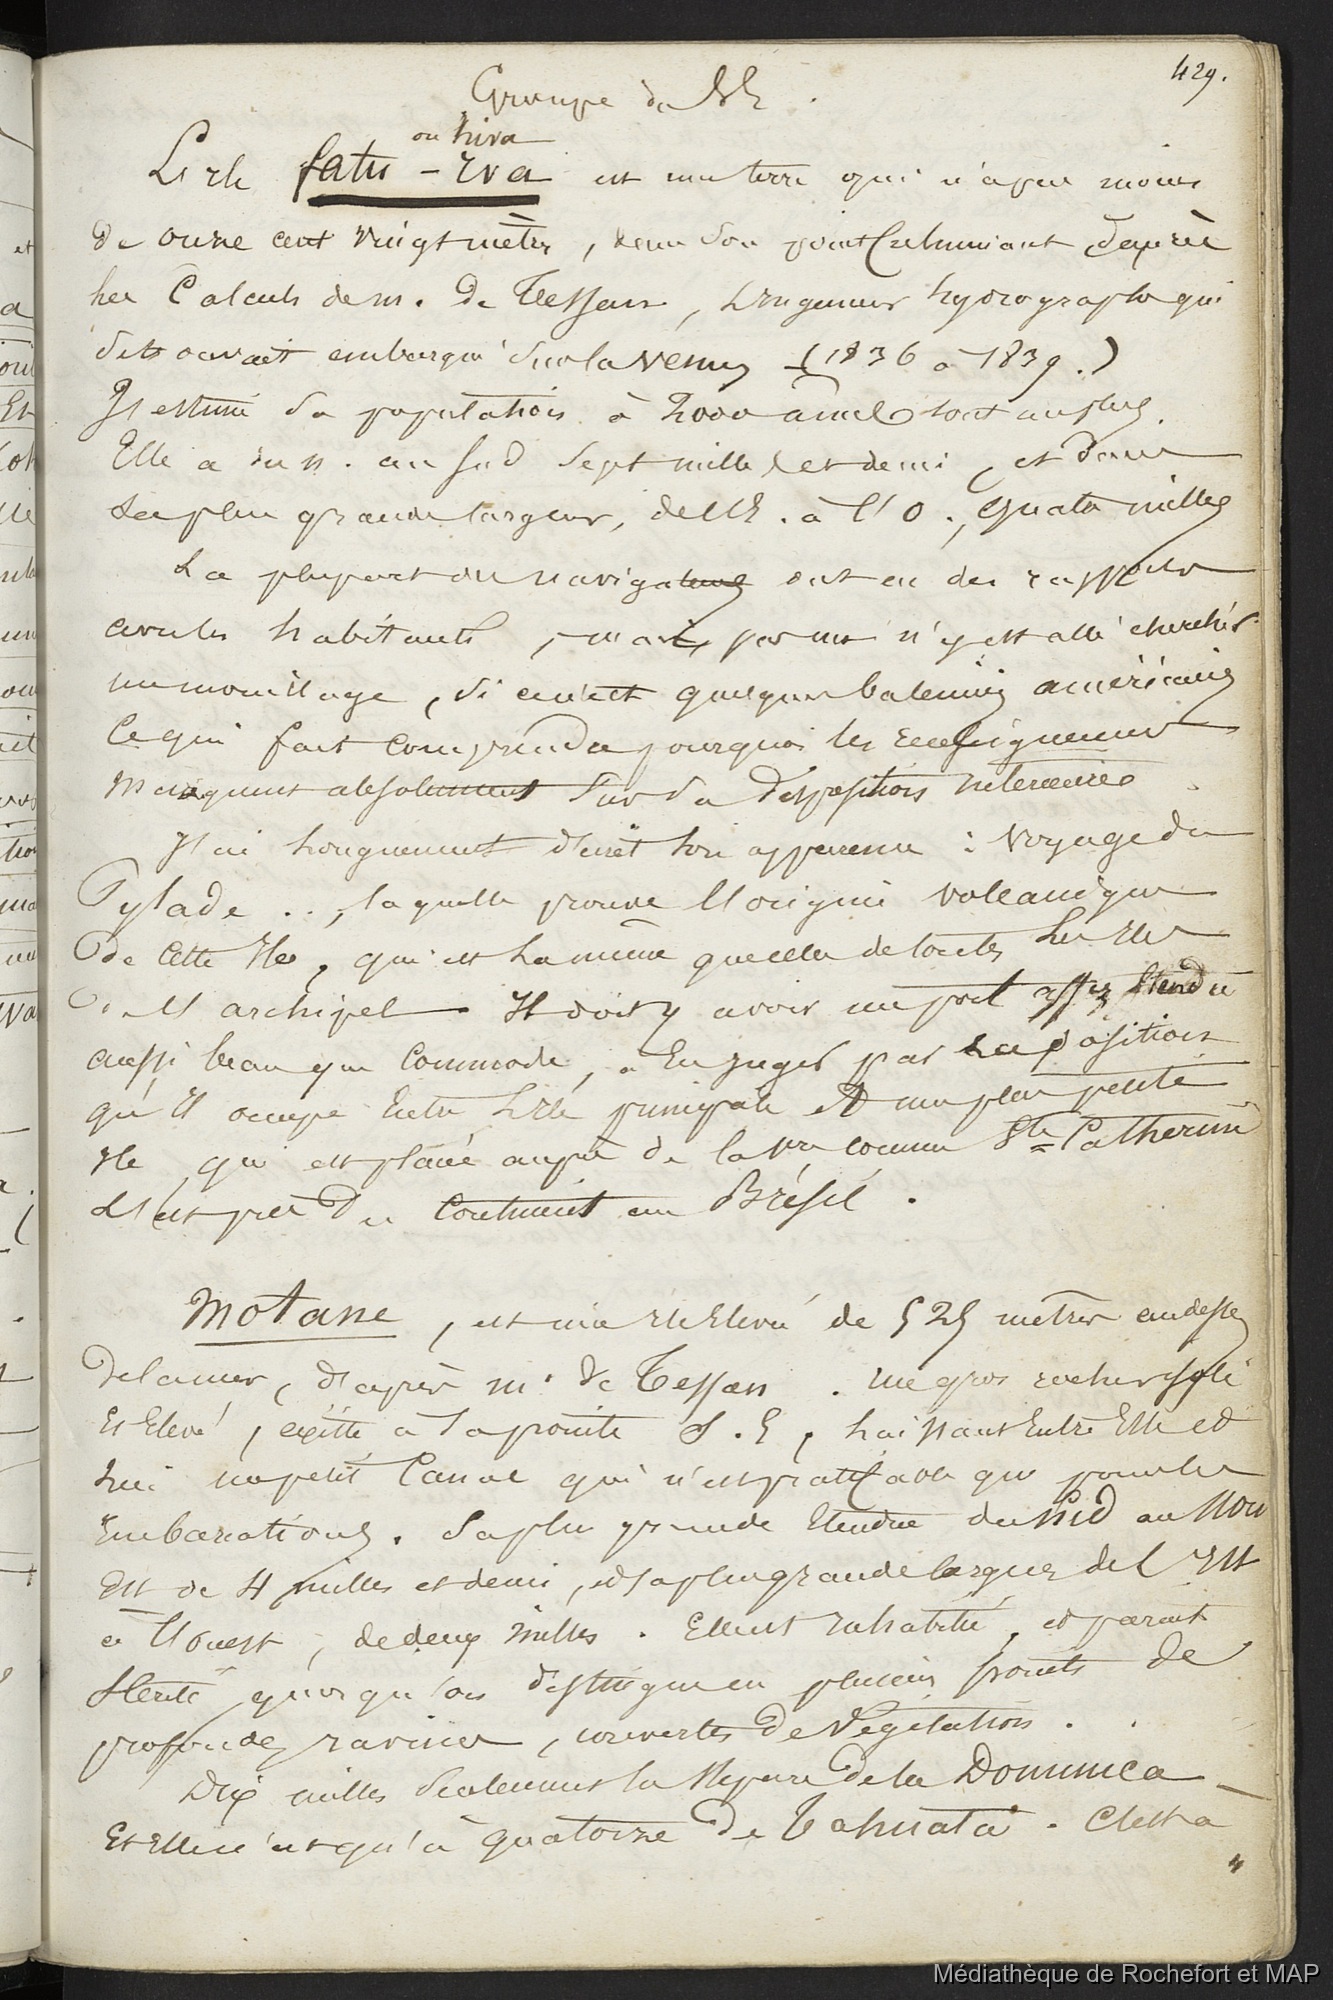 429.
Groupe du SE.
ou hiva
L'isle fatu-iva est une terre qui n'a pas moins
de onze cent vingt mètres, dans son point culminant d'après
les Calculs de m. De Tessan, L'ingenieur hydrographe qui
était embarqué sur la venus (1836 à 1839.)
Il estime sa population à 2000 âmes tout au plus.
Elle a du n. au sud sept milles et demi, et dans
sa plus grande largeur, de l'E. à l'O., quatre milles
La plupart des navigateurs ont eu des rapports
avec les habitants, mais pas un n'y est allé chercher
un mouillage, si ce n'est quelques baleiniers américains
Ce qui fait comprendre pourquoi les renseignements
manquent absolument sur sa disposition intérieure.
J'ai longuement décrit son apparence : Voyage du
Pylade .., laquelle prouve l'origine volcanique
de cette île, qui est la même que celle de toutes les îles
de l'archipel. Il doit y avoir un port assez étendu
aussi beau que commode, à en juger par la position
qu'il occupe entre l'île principale et une plus petite
île, qui est placée auprès de la 1re comme Ste Catherine
l'est près du continent au Brésil.
Motane, est une île élevée de 525 mètres au dessus
de la mer, d'après m. de Tessan. un gros rocher isolé
et élevé, existe à la pointe S.E, laissant entre elle et
lui un petit canal qui n'est praticable que pour les
embarcations. Sa plus grande étendue du sud au nord
est de 4 milles et demi, et sa plus grande largeur de l'est
à l'ouest, de deux milles. Elle est inhabitée, et parait
stérile quoiqu'on distingue en plusieurs points de
profondes ravines, couvertes de végétation.
Dix milles seulement la sépare de la Dominica
et elle n'est qu'à quatorze de Tahuata. C'est à